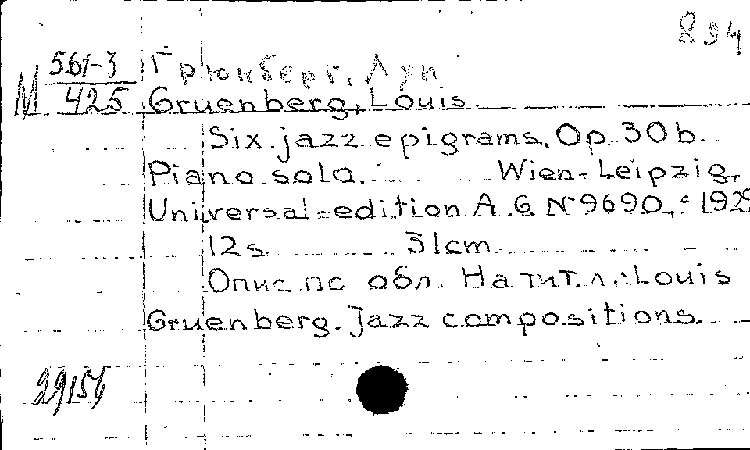 894
М 561-3
425
Грюнберг, Луи
Gruenberg, Louis
Six jazz epigrams. Op. 30b.
Piano solo. Wien-Leipzig,
Universal-edition A.G. № 9690, c 192
12s. 31cm
Опис. по обл. На тит. л.: Louis
Gruenberg. Jazz compositions.
29156